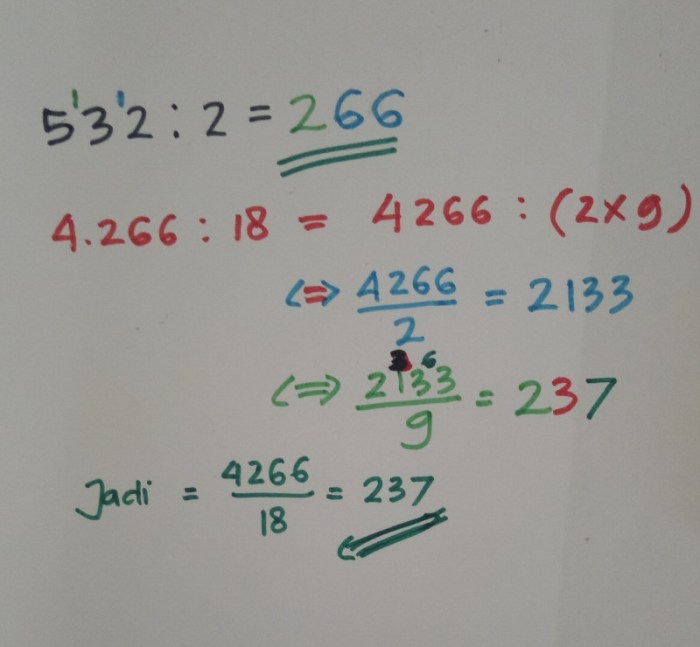 5¹3¹2 : 2 = 266
4.266 : 18 = 4266 : (2×9)
<=> 4266/2 = 2133
3 6
<=> 2133/9 = 237
Jadi = 4266/18 = 237